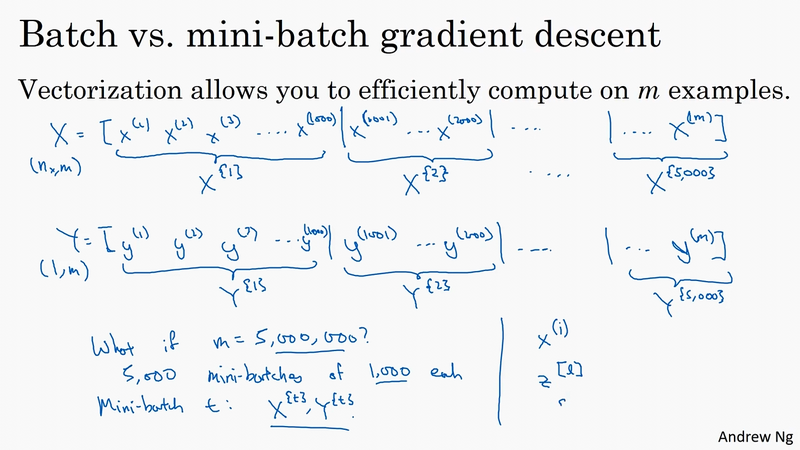 Batch vs. mini-batch gradient descent
Vectorization allows you to efficiently compute on m examples.
X = [x^(1) x^(2) x^(3) .... x^(1000) | x^(1001) ... x^(2000) | .... | .... x^(m)]
(n_x, m)
X^{1} X^{2} .... X^{5,000}
Y = [y^(1) y^(2) y^(3) ... y^(1000) | y^(1001) ... y^(2000) | .... | ... y^(m)]
(1, m)
Y^{1} Y^{2} Y^{5,000}
What if m = 5,000,000?
5,000 mini-batches of 1,000 each
Mini-batch t: X^{t}, Y^{t}.
x^(i)
z^[l]
Andrew Ng